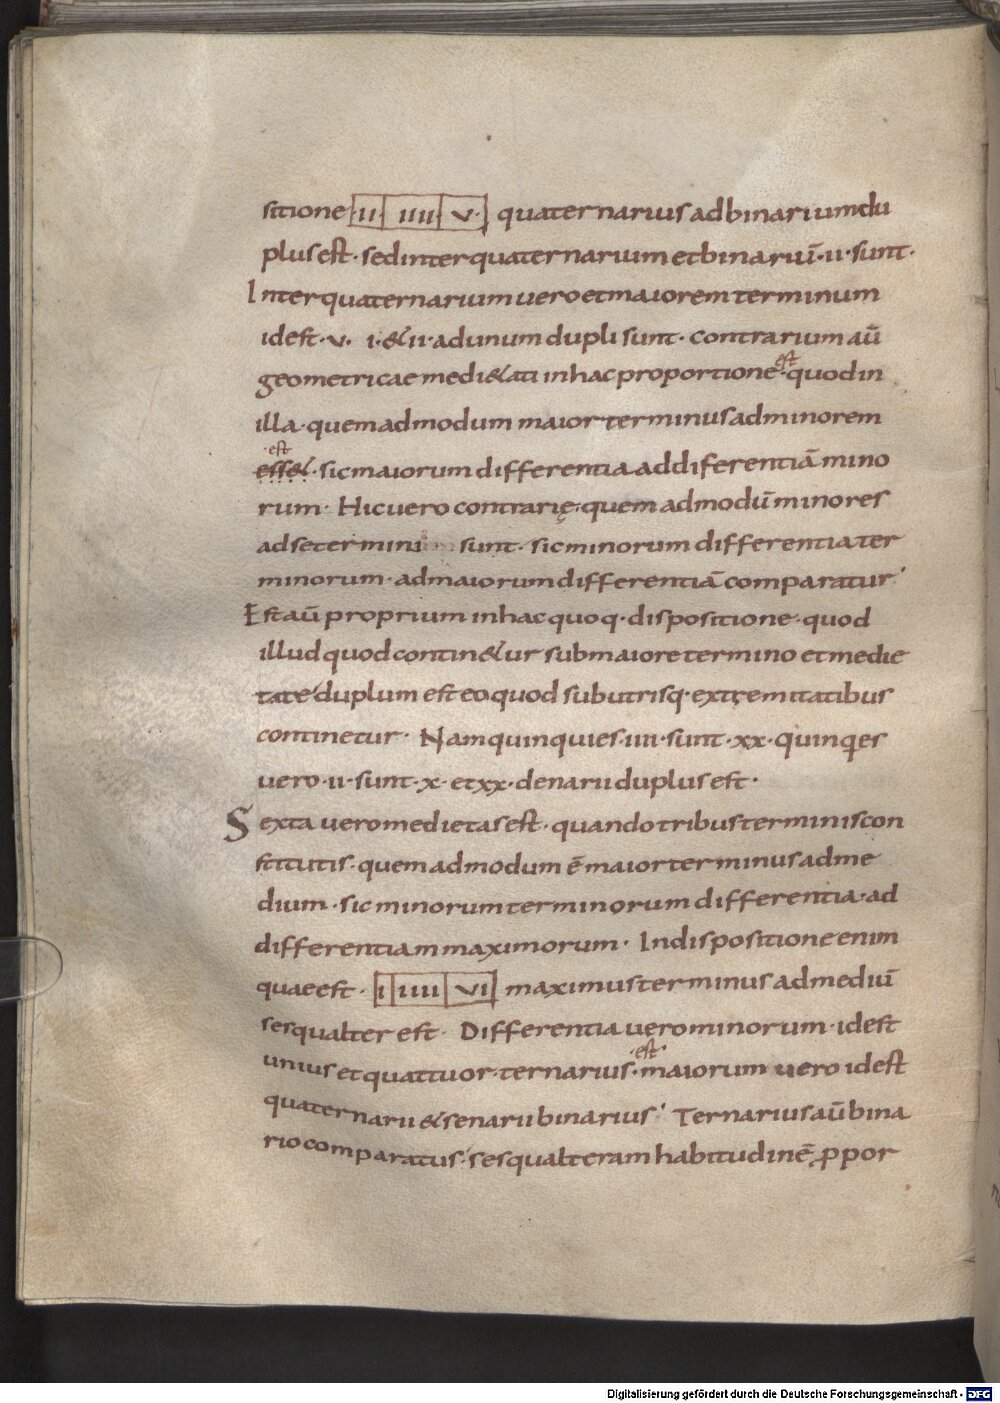 sitione II IIII V· quaternarius ad binarium du
plus est· sed inter quaternarium et binariū· II· sunt·
Inter quaternarium vero et maiorem terminum
id est· V· I· & II· ad unum dupli sunt· contrarium aū
geometricae medi&ati in hac proportione ·est· quod in
illa· quemadmodum maior terminus ad minorem
·est·
ess&· sic maiorum differentia ad diferentiā mino
rum· Hic vero contrarię· quemadmodū minores
ad se termini sunt· sic minorum differentia ter
minorum· ad maiorum differentiā comparatur·
Est aū proprium in hac quoq· dispositione· quod
illud quod contin&ur sub maiore termino et medie
tate duplum est eo quod sub utrisq· extremitatibus
continetur· Nam quinquies· IIII· sunt· XX· quinqies
vero· II· sunt· X· et XX· denarii duplus est·
Sexta vero medietas est· quando tribus terminis con
stitutis· quemadmodum ē maior terminus ad me
dium· sic minorum terminorum differentia· ad
differentiam maximorum· In dispositione enim
quae est· I IIII VI maximus terminus ad mediū
sesqualter est· Differentia vero minorum· id est
unius et quattuor· ternarius ·est· maiorum vero id est
quaternarii & senarii binarius· Ternarius aū bina
rio comparatus· sesqualteram habitudinē ꝓpor
Digitalisierung gefördert durch die Deutsche Forschungsgemeinschaft - DFG